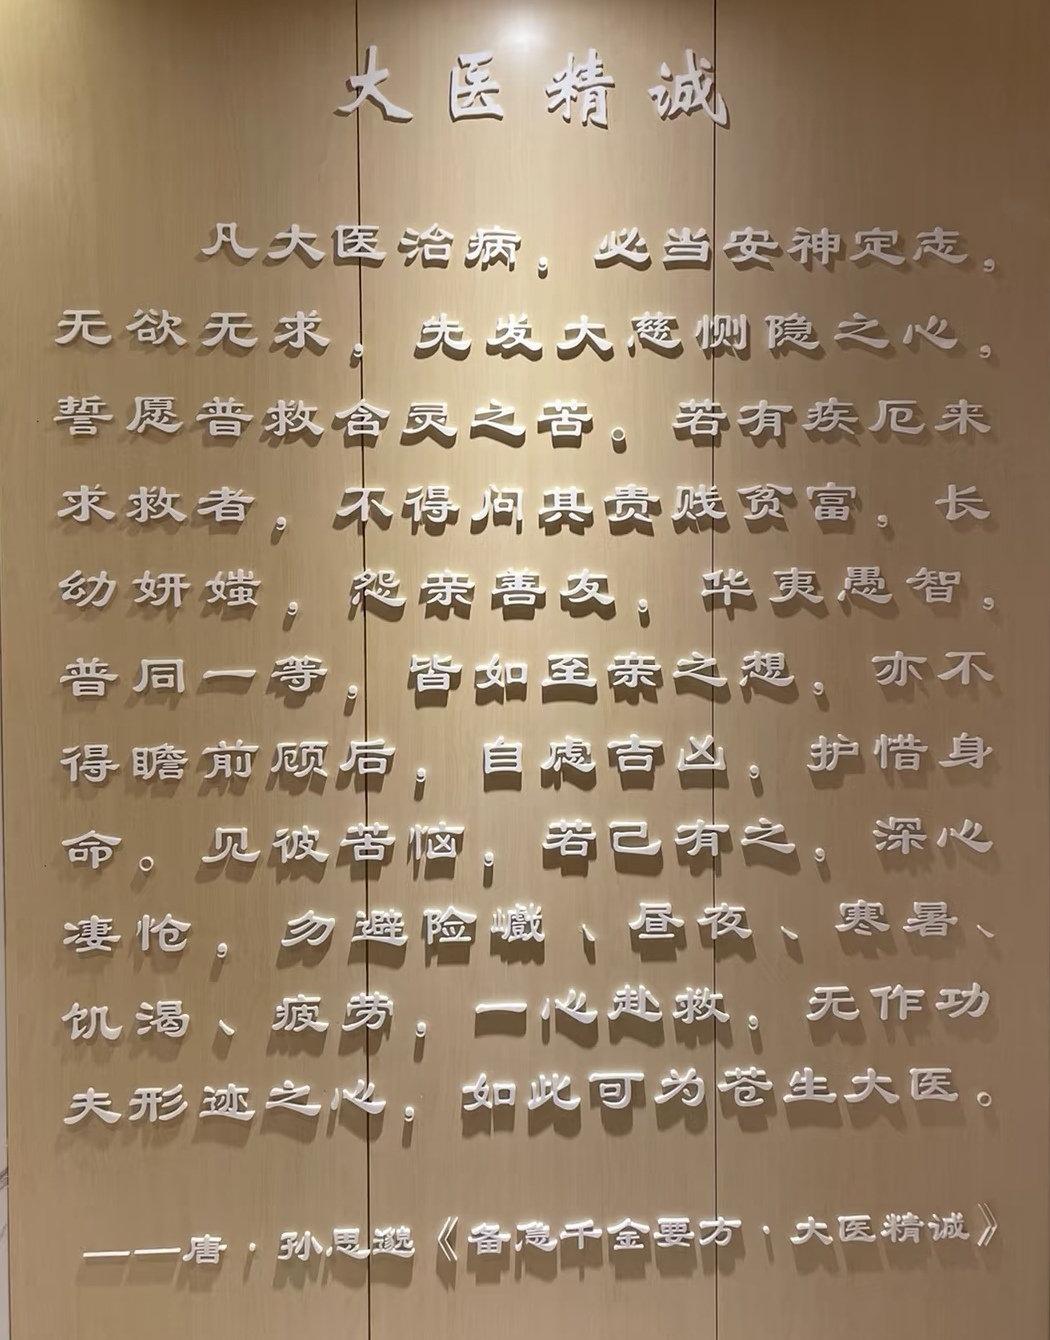 大医精诚
凡大医治病，必当安神定志，
无欲无求，先发大慈恻隐之心，
誓愿普救含灵之苦。若有疾厄来
求救者，不得问其贵贱贫富，长
幼妍媸，怨亲善友，华夷愚智，
普同一等，皆如至亲之想，亦不
得瞻前顾后，自虑吉凶，护惜身
命。见彼苦恼，若己有之，深心
凄怆，勿避险巇、昼夜、寒暑、
饥渴、疲劳，一心赴救，无作功
夫形迹之心，如此可为苍生大医。
——唐·孙思邈《备急千金要方·大医精诚》